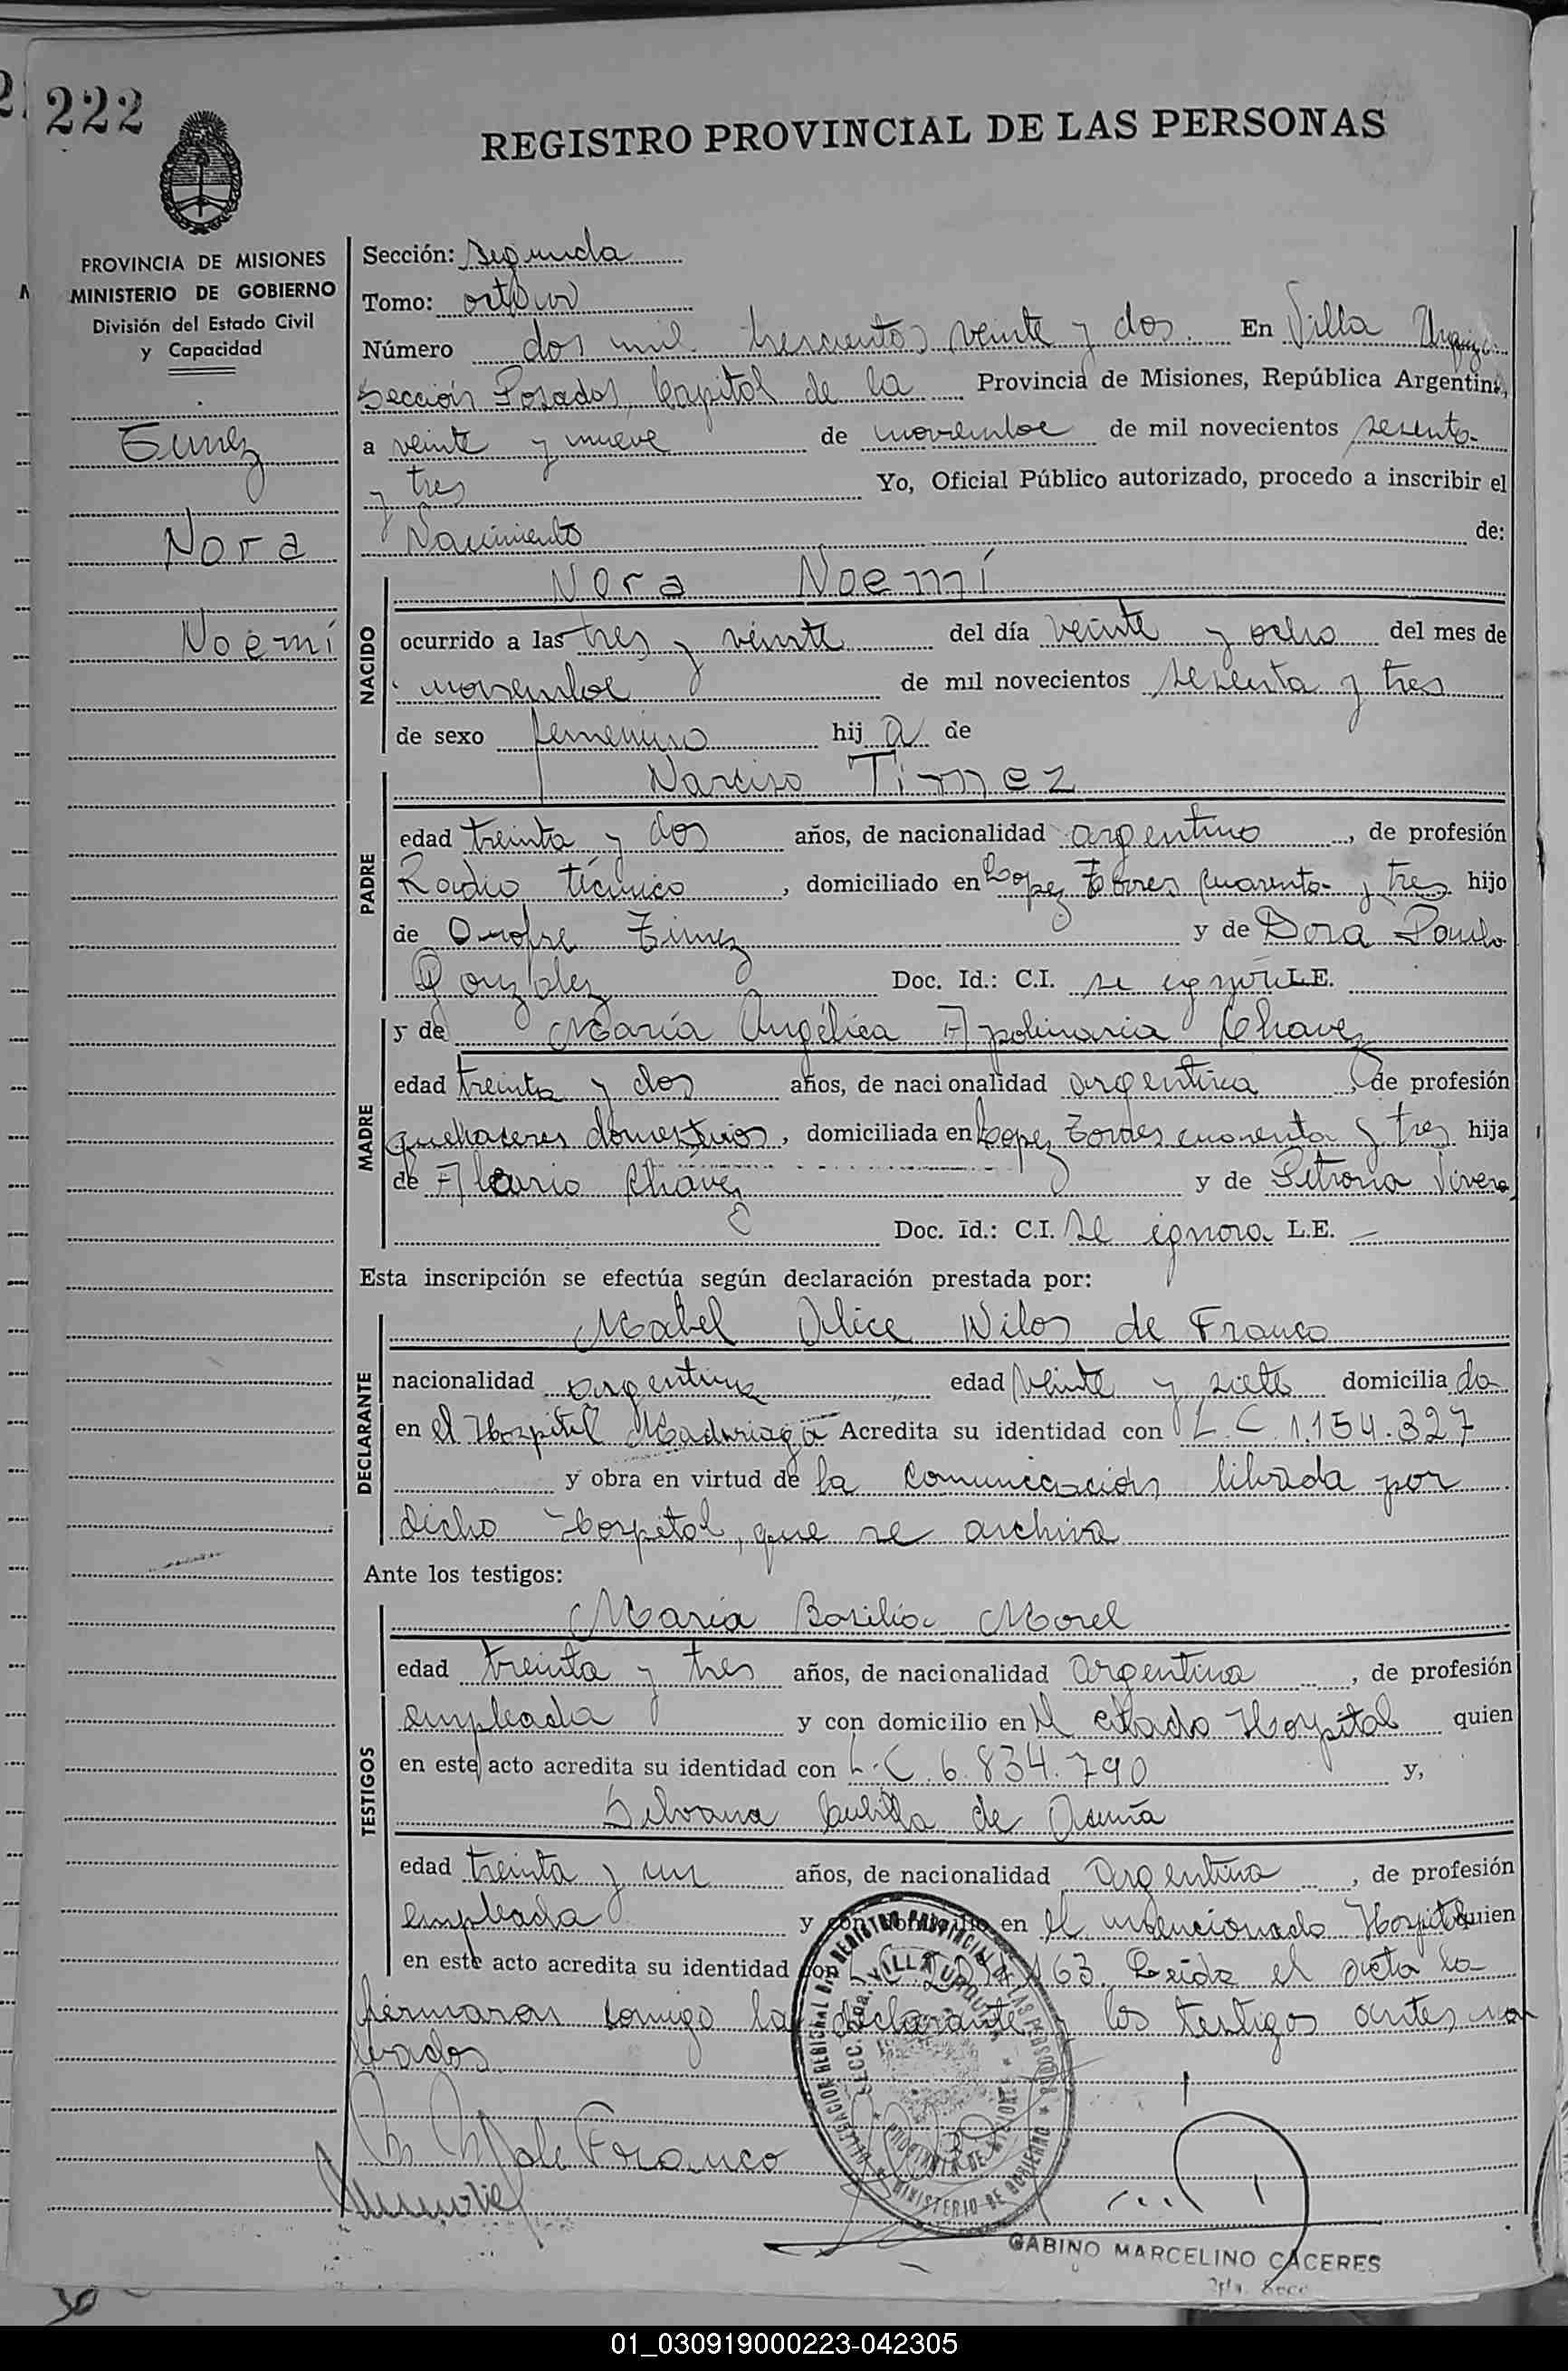 222
REGISTRO PROVINCIAL DE LAS PERSONAS
PROVINCIA DE MISIONES
MINISTERIO DE GOBIERNO
División del Estado Civil
y Capacidad
Nora
Noemí
Sección: Segunda
Tomo:
Número dos mil trescientos veinte y dos. En Villa Urquiza
Sección Posadas, Capital de la Provincia de Misiones, República Argentina,
a veinte y nueve de noviembre de mil novecientos sesenta
y tres Yo, Oficial Público autorizado, procedo a inscribir el
Nacimiento de:
NACIDO
Nora Noemí
ocurrido a las tres y veinte del día veinte y ocho del mes de
noviembre de mil novecientos sesenta y tres
de sexo femenino hij a de
PADRE
Narciso Timez
edad treinta y dos años, de nacionalidad argentino, de profesión
Radio técnico, domiciliado en Lopez Torres cuarenta y tres hijo
de Onofre y de Dora Paula
González Doc. Id.: C.I. se ignora L.E.
MADRE
y de María Angélica Apolinaria Chavez
edad treinta y dos años, de nacionalidad argentina, de profesión
quehaceres domesticos, domiciliada en Lopez Torres cuarenta y tres hija
de Chávez y de Petrona
Doc. Id.: C.I. se ignora L.E. —
Esta inscripción se efectúa según declaración prestada por:
DECLARANTE
Mabel Alice de Franco
nacionalidad argentina edad veinte y siete domicilia da
en el Hospital Madariaga Acredita su identidad con L.C. 1.154.327
y obra en virtud de la comunicación librada por
dicho Hospital, que se archiva
Ante los testigos:
TESTIGOS
María Basilia Morel
edad treinta y tres años, de nacionalidad argentina, de profesión
empleada y con domicilio en el citado Hospital quien
en este acto acredita su identidad con L.C. 6.834.790 y,
Silvana de
edad treinta y un años, de nacionalidad argentina, de profesión
empleada y con domicilio en el mencionado Hospital quien
en este acto acredita su identidad con 163. Leida el acta la
firmaron comigo la declarante y los testigos antes nom
brados
DELEGACION REGIONAL DEL REGISTRO PROVINCIAL DE LAS PERSONAS
SECC. 2da. VILLA URQUIZA
PROVINCIA DE MISIONES
MINISTERIO DE GOBIERNO
de Franco
GABINO MARCELINO CACERES
01_030919000223-042305